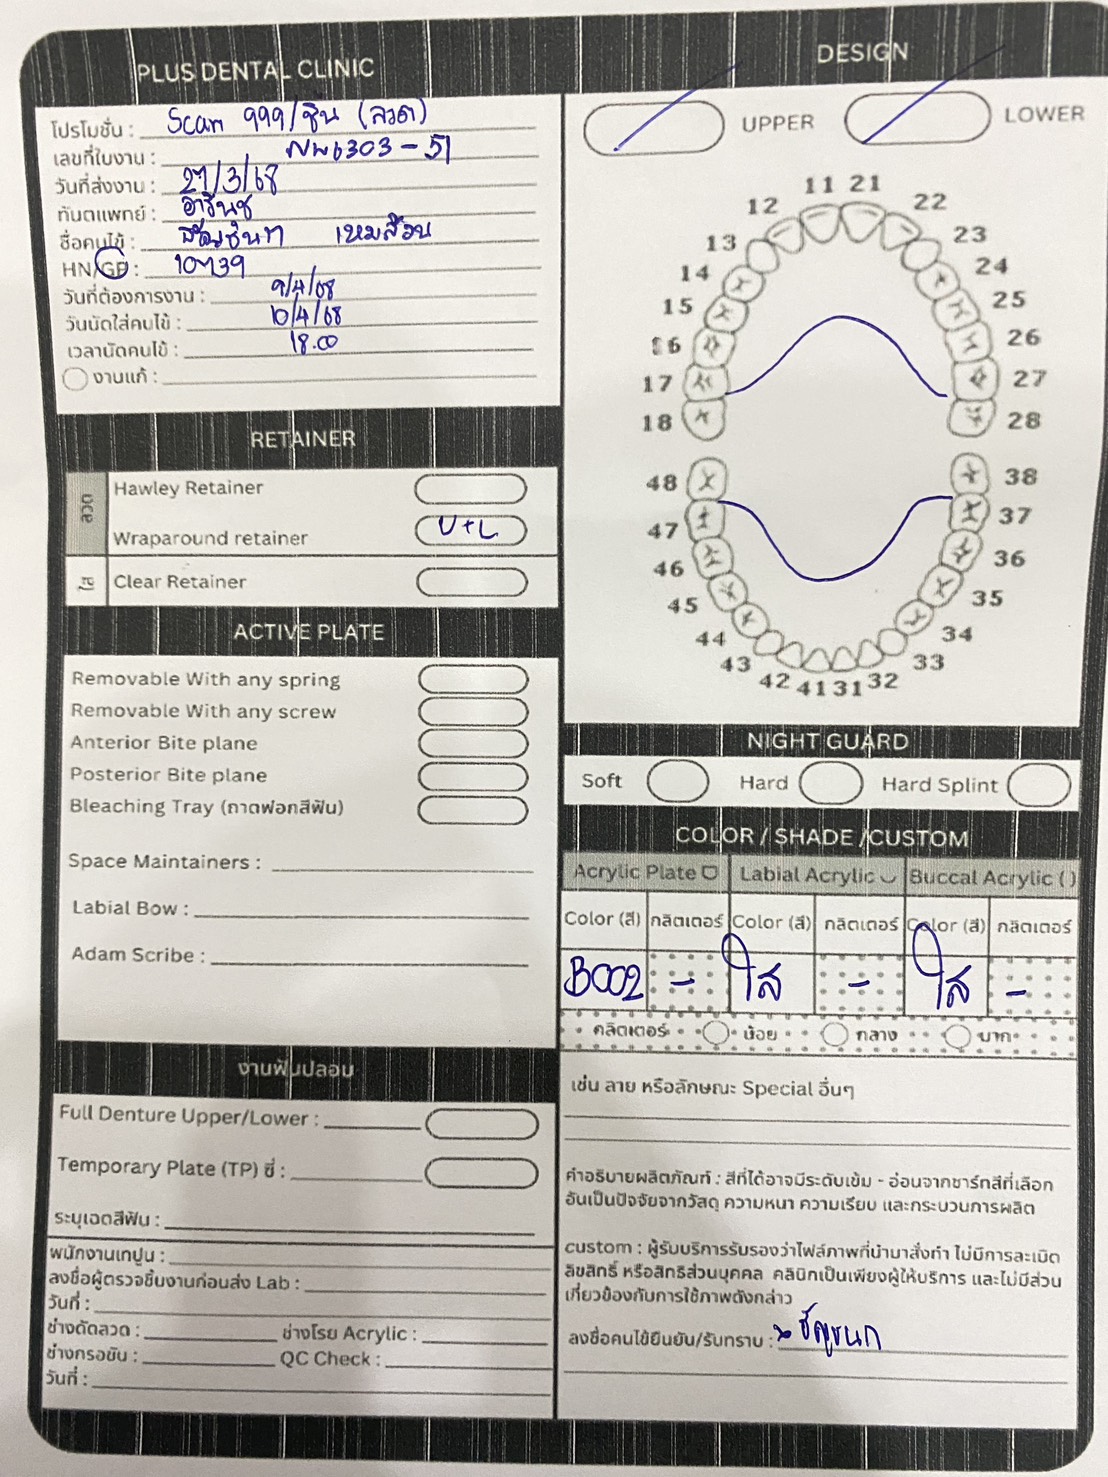 PLUS DENTAL CLINIC
โปรโมชั่น : Scan 999/ชิ้น (ลวด)
เลขที่ใบงาน : 6303-51
วันที่ส่งงาน : 27/3/68
ทันตแพทย์ :
ชื่อคนไข้ : เหมล้วน
HN/GP : 10739
วันที่ต้องการงาน : 9/4/68
วันนัดใส่คนไข้ : 10/4/68
เวลานัดคนไข้ : 18.00
งานแก้ :
RETAINER
ลวด
Hawley Retainer
Wraparound retainer U+L
ใส
Clear Retainer
ACTIVE PLATE
Removable With any spring
Removable With any screw
Anterior Bite plane
Posterior Bite plane
Bleaching Tray (ถาดฟอกสีฟัน)
Space Maintainers :
Labial Bow :
Adam Scribe :
งานฟันปลอม
Full Denture Upper/Lower :
Temporary Plate (TP) ซี่ :
ระบุเฉดสีฟัน :
พนักงานเทปูน :
ลงชื่อผู้ตรวจชิ้นงานก่อนส่ง Lab :
วันที่ :
ช่างดัดลวด : ช่างโรย Acrylic :
ช่างกรอขัด : QC Check :
วันที่ :
DESIGN
UPPER LOWER
11 21
12 22
13 23
14 24
15 25
16 26
17 27
18 28
48 38
47 37
46 36
45 35
44 34
43 33
42 41 31 32
NIGHT GUARD
Soft Hard Hard Splint
COLOR / SHADE /CUSTOM
Acrylic Plate Labial Acrylic Buccal Acrylic ( )
Color (สี) กลิตเตอร์ Color (สี) กลิตเตอร์ Color (สี) กลิตเตอร์
B002 - ใส - ใส -
กลิตเตอร์ น้อย กลาง มาก
เช่น ลาย หรือลักษณะ Special อื่นๆ
คำอธิบายผลิตภัณฑ์ : สีที่ได้อาจมีระดับเข้ม - อ่อนจากชาร์ทสีที่เลือก
อันเป็นปัจจัยจากวัสดุ ความหนา ความเรียบ และกระบวนการผลิต
custom : ผู้รับบริการรับรองว่าไฟล์ภาพที่นำมาสั่งทำ ไม่มีการละเมิด
ลิขสิทธิ์ หรือสิทธิส่วนบุคคล คลินิกเป็นเพียงผู้ให้บริการ และไม่มีส่วน
เกี่ยวข้องกับการใช้ภาพดังกล่าว
ลงชื่อคนไข้ยืนยัน/รับทราบ :